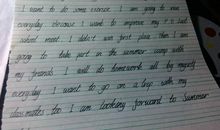 I want to do some exercise. I am going to run
everyday because I want to improve my P.E. Last
school meet I didn't win first place. Then I am
going to take part in the summer camp with
my friends. I will do homework all by myself
everyday. I want to go on a trip with my
classmates too. I am looking forward to summer